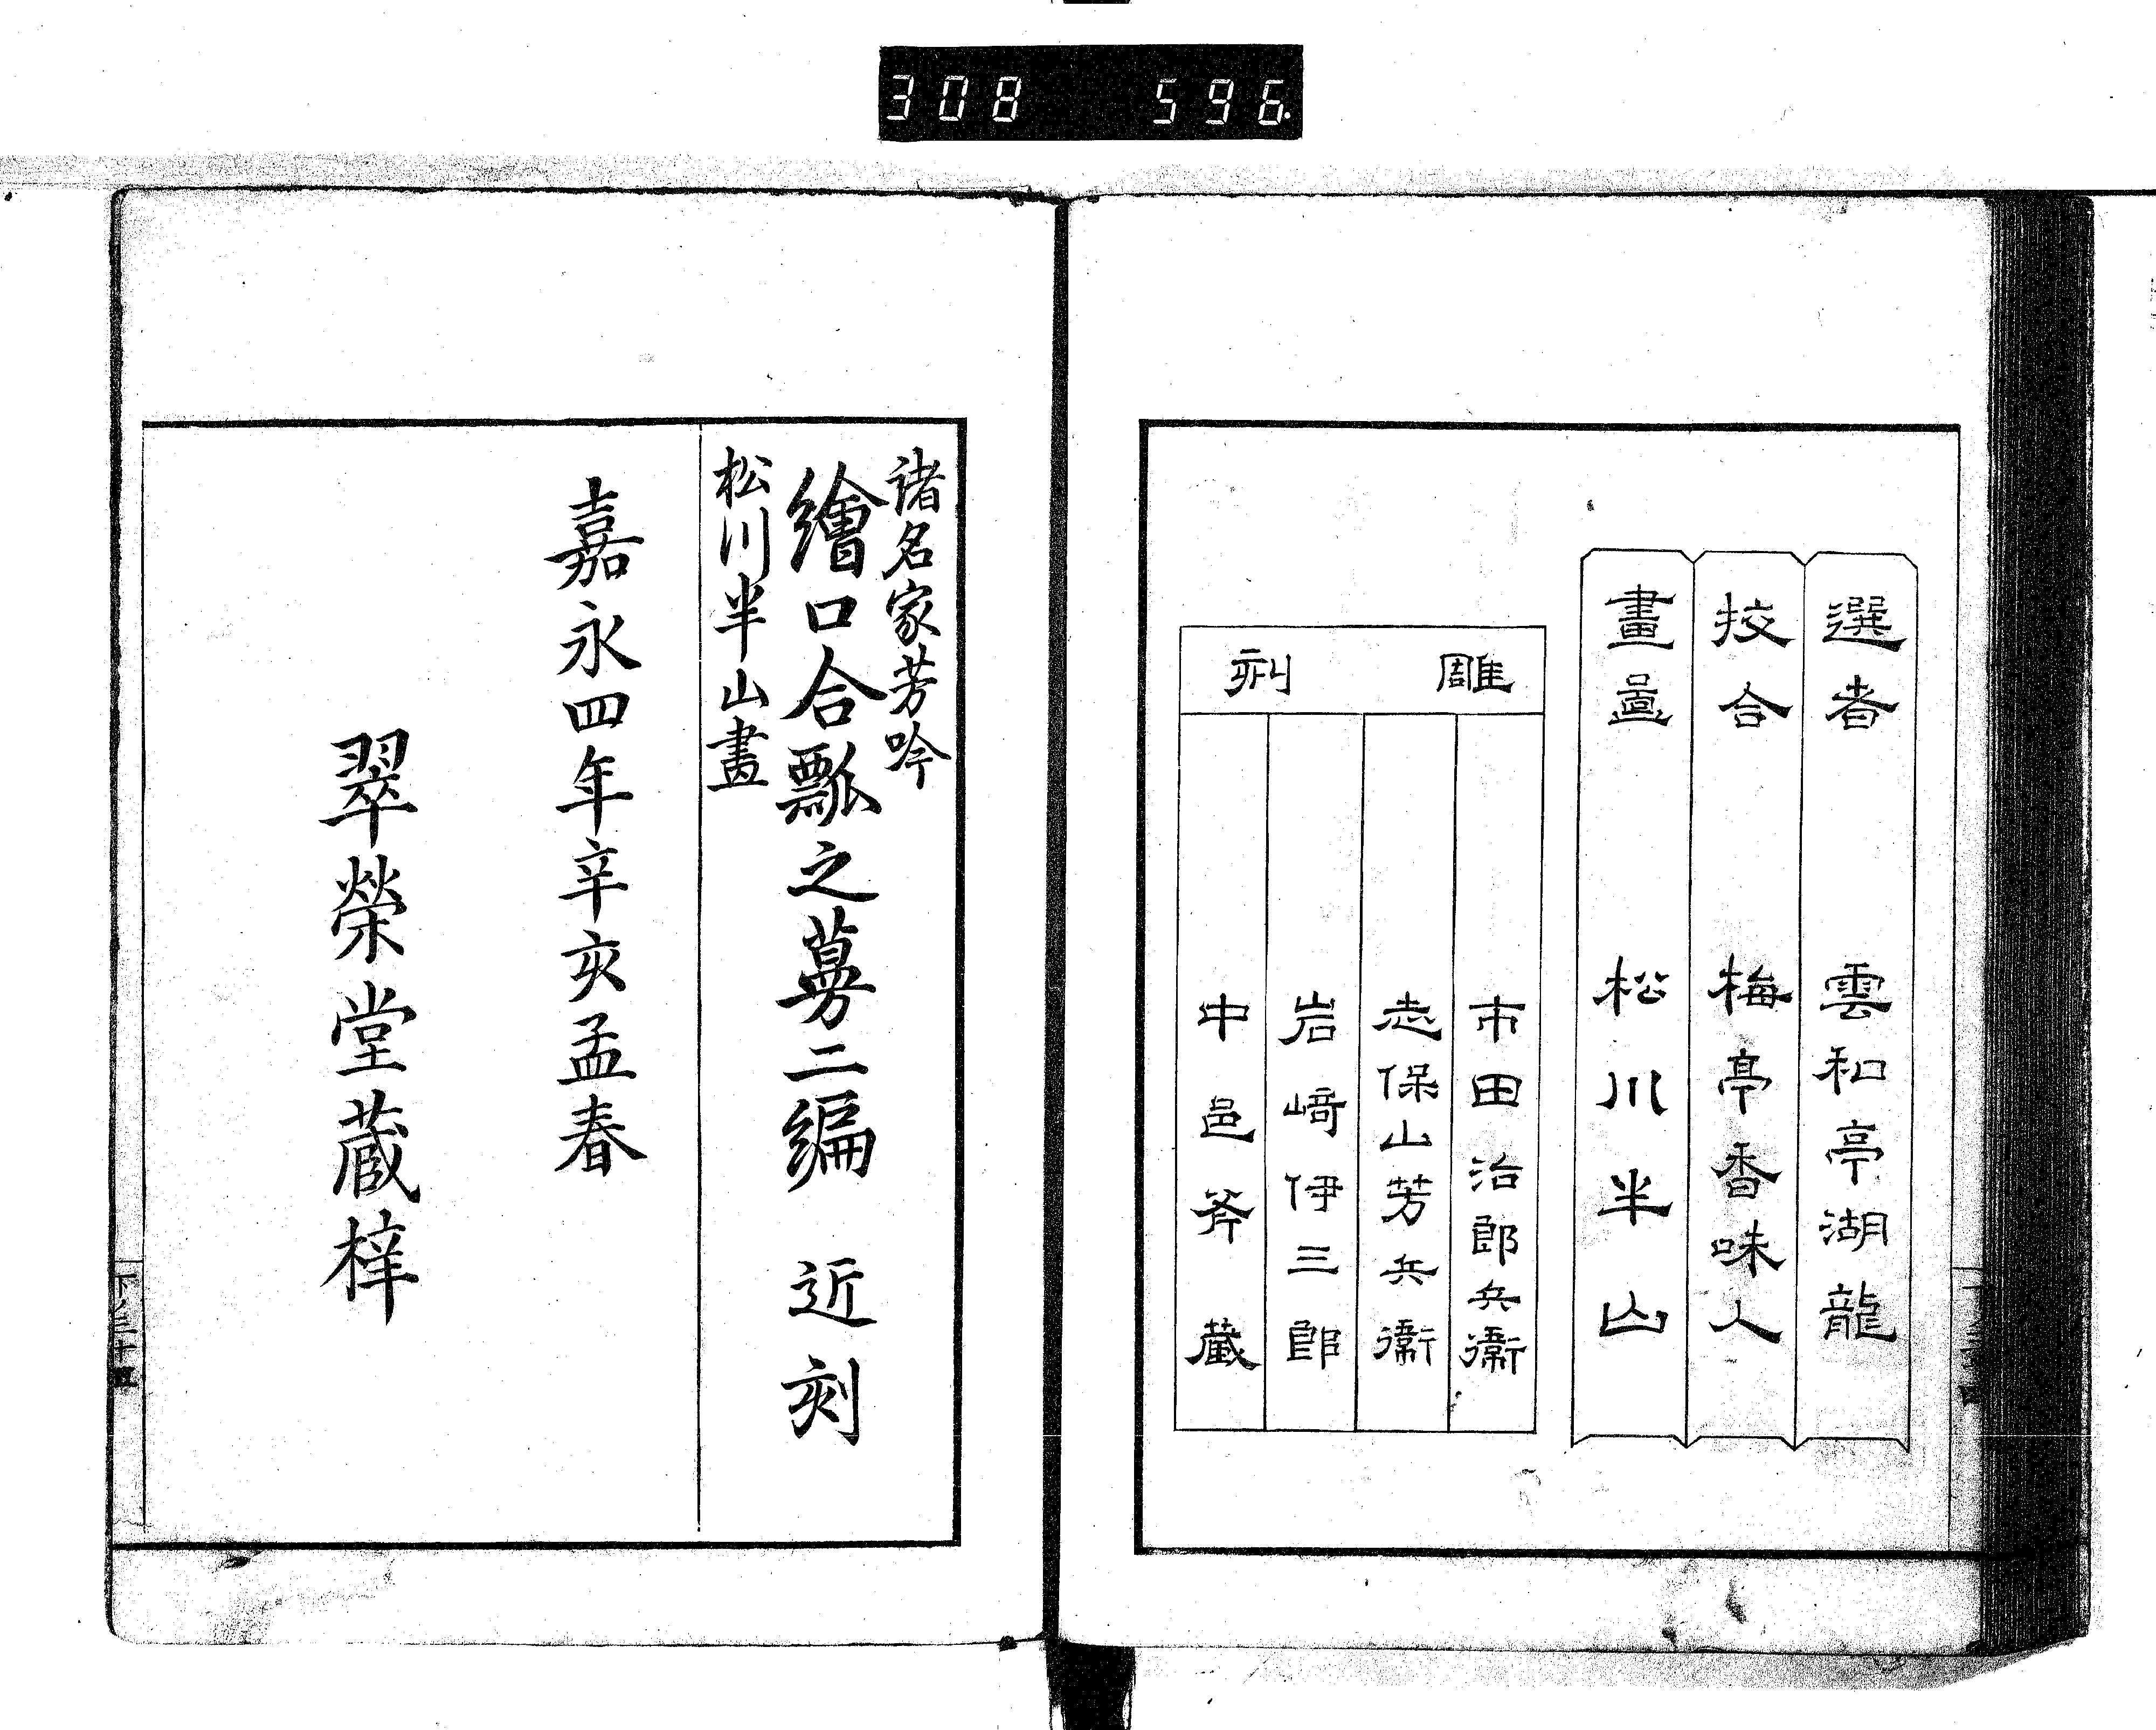 308 596.
選者 雲和亭湖龍
挍合 梅亭香味人
畫圖 松川半山
雕刻
市田治郎兵衞
志保山芳兵衞
岩﨑伊三郎
中邑斧藏
諸名家芳吟
繪口合瓢之蔓二編 近刻
松川半山畫
嘉永四年辛亥孟春
翠榮堂蔵梓
下ノ三十五